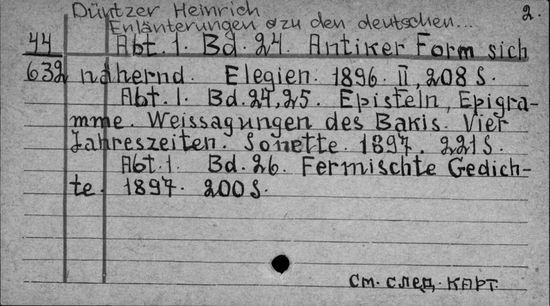 Düntzer Heinrich 2.
Enlänterungen zu den deutschen...
44 Abt. 1. Bd. 24. Antiker Form sich
632 nähernd. Elegien. 1896. II, 208 S.
Abt. 1. Bd. 24, 25. Episteln, Epigra-
mme. Weissagungen des Bakis. Vier
Jahreszeiten. Sonette. 1897. 221 S.
Abt. 1. Bd. 26. Fermischte Gedich-
te. 1897. 200 S.
см. след. карт.